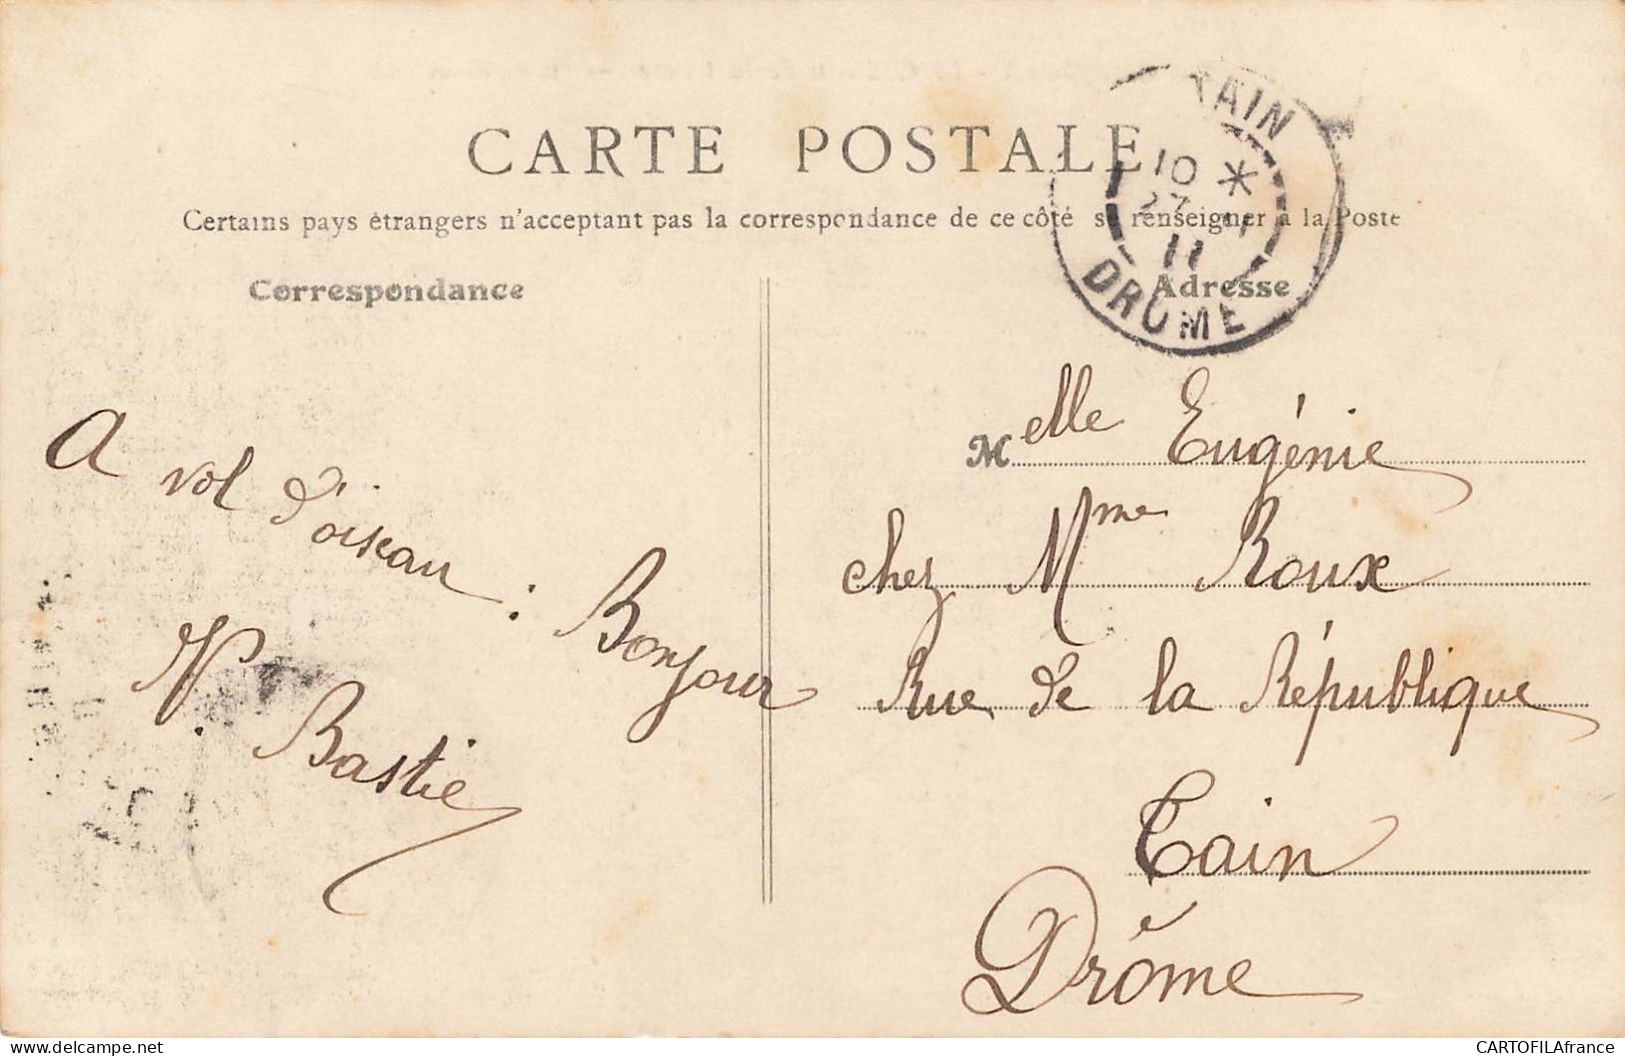 CARTE POSTALE
Certains pays étrangers n'acceptant pas la correspondance de ce côté se renseigner à la Poste
Correspondance
Adresse
TAIN
10 *
27
11
DROME
A vol d'oiseau : Bonjour
Bastie
Melle Eugénie
chez Mme Roux
Rue de la République
Tain
Drôme
CARTOFILAfrance